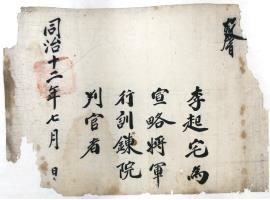 李起宅爲
宣略將軍
行訓鍊院
判官者
同治十二年七月 日